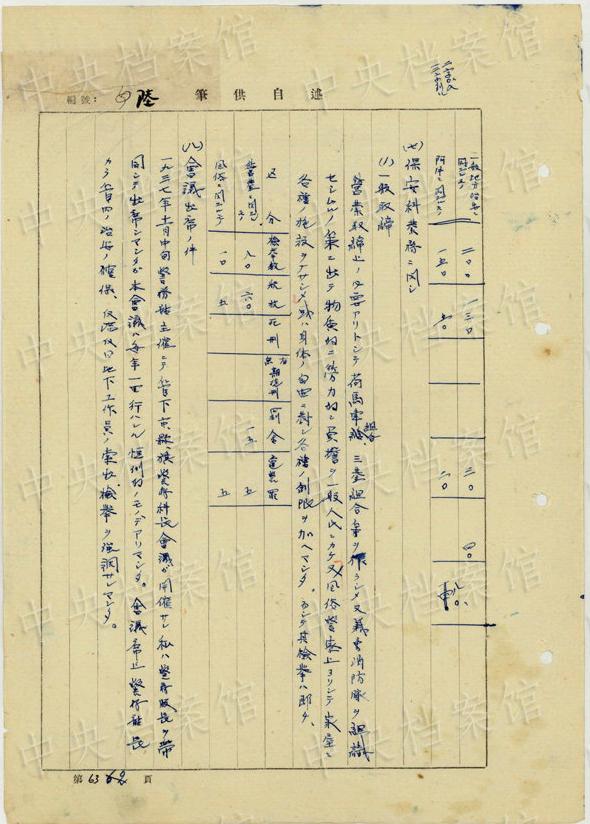 述自供筆
編號：
陸
一般地方犯罪ニ
関スルモノ 二〇〇 一三〇 三〇
阿片ニ関スルモノ 一五〇 二〇
(七) 保安科業務ニ関シ
(1) 一般取締
營業取締上ノ必要アリトシテ荷馬車組合、三業組合等ヲ作ラシメ又義勇消防隊ヲ組織
セシムル等ニ出デ物質的ニ労力的ニ負擔ヲ一般人民ニカケ又風俗警察上ヨリシテ家屋ニ
各種施設ヲナサシメ或ハ身体ノ自由ニ對シ各種ノ制限ヲ加ヘマシタ。而シテ其検挙ハ即チ、
区分 檢挙数 釈放 死刑 有無期徒刑 罰金 童無罪
營業ニ関スルモノ 八〇 六〇 一五 五
風俗ニ関スルモノ 一〇 五 五
(八) 會議出席ノ件
一九三七年十月中旬警務廳主催ニテ管下市縣旗警務科長會議ガ開催サレ私ハ警務股長ヲ帯
同シテ出席シマシタガ本會議ハ毎年一回行ハレル恒例的ノモノデアリマシタ。會議席上警務廳長
カラ管内ノ治安ノ確保、反満抗日地下工作員ノ索出検挙ヲ強調サレマシタ。
第 63 頁
中央档案馆